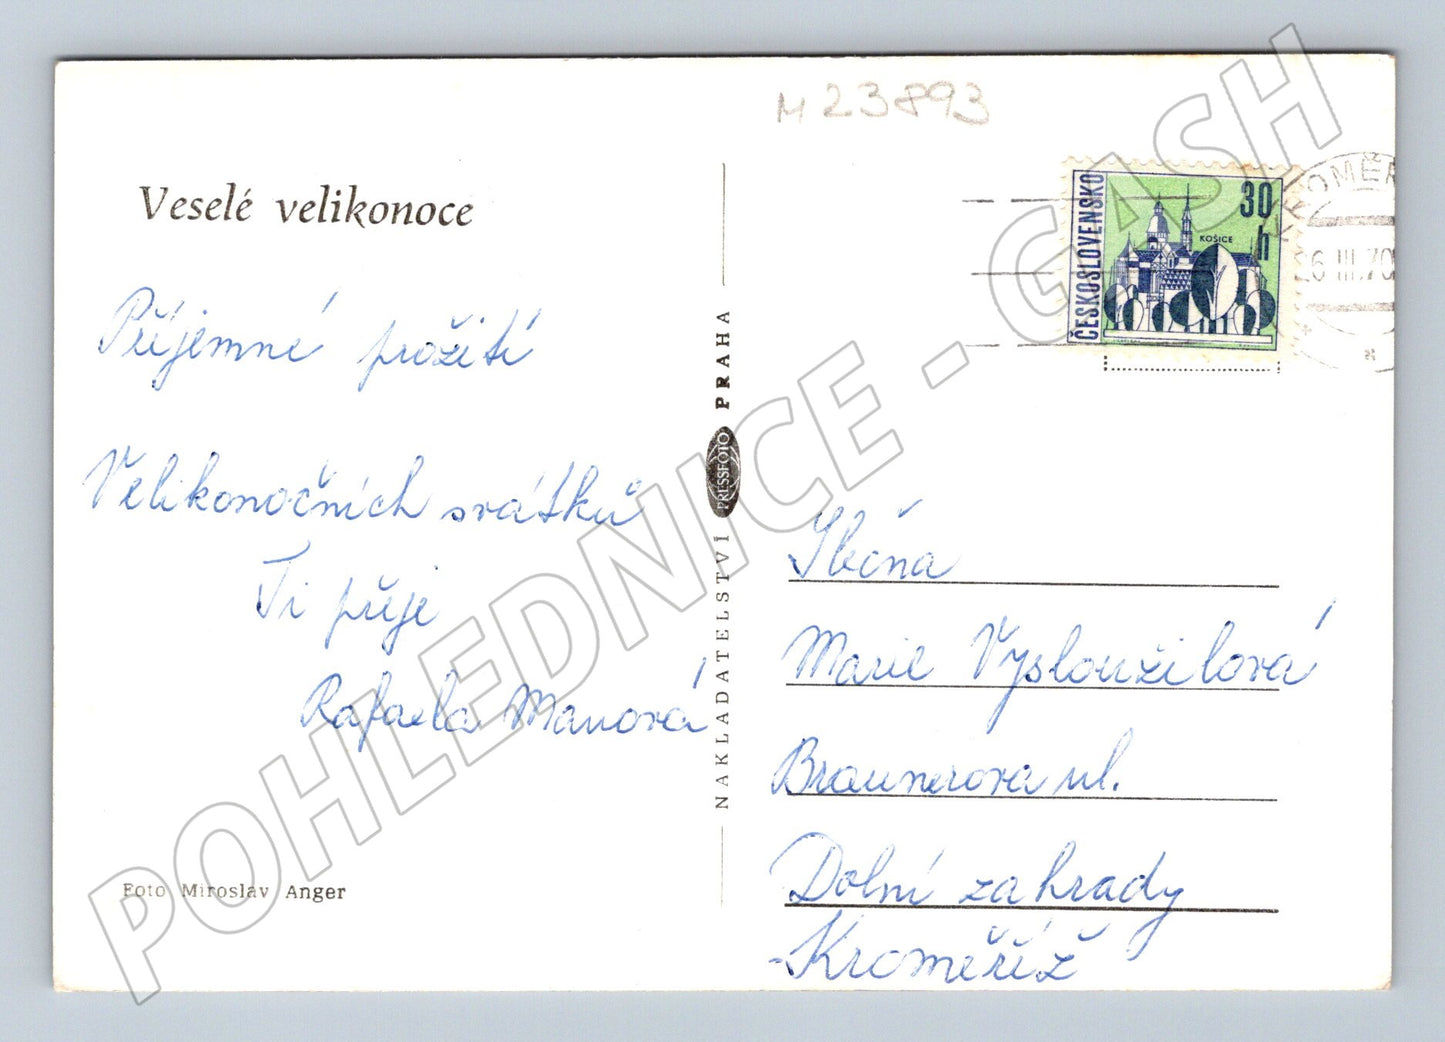 M 23893
Veselé velikonoce
Příjemné prožití
Velikonočních svátků
Ti přeje
Rafaela Manová
Foto Miroslav Anger
NAKLADATELSTVÍ PRESSFOTO PRAHA
ČESKOSLOVENSKO
30 h
KOŠICE
KROMĚŘ
26 III.70
Marie Vysloužilová
Braunerova ul.
Dolní zahrady
Kroměříž
POHLEDNICE - GASH